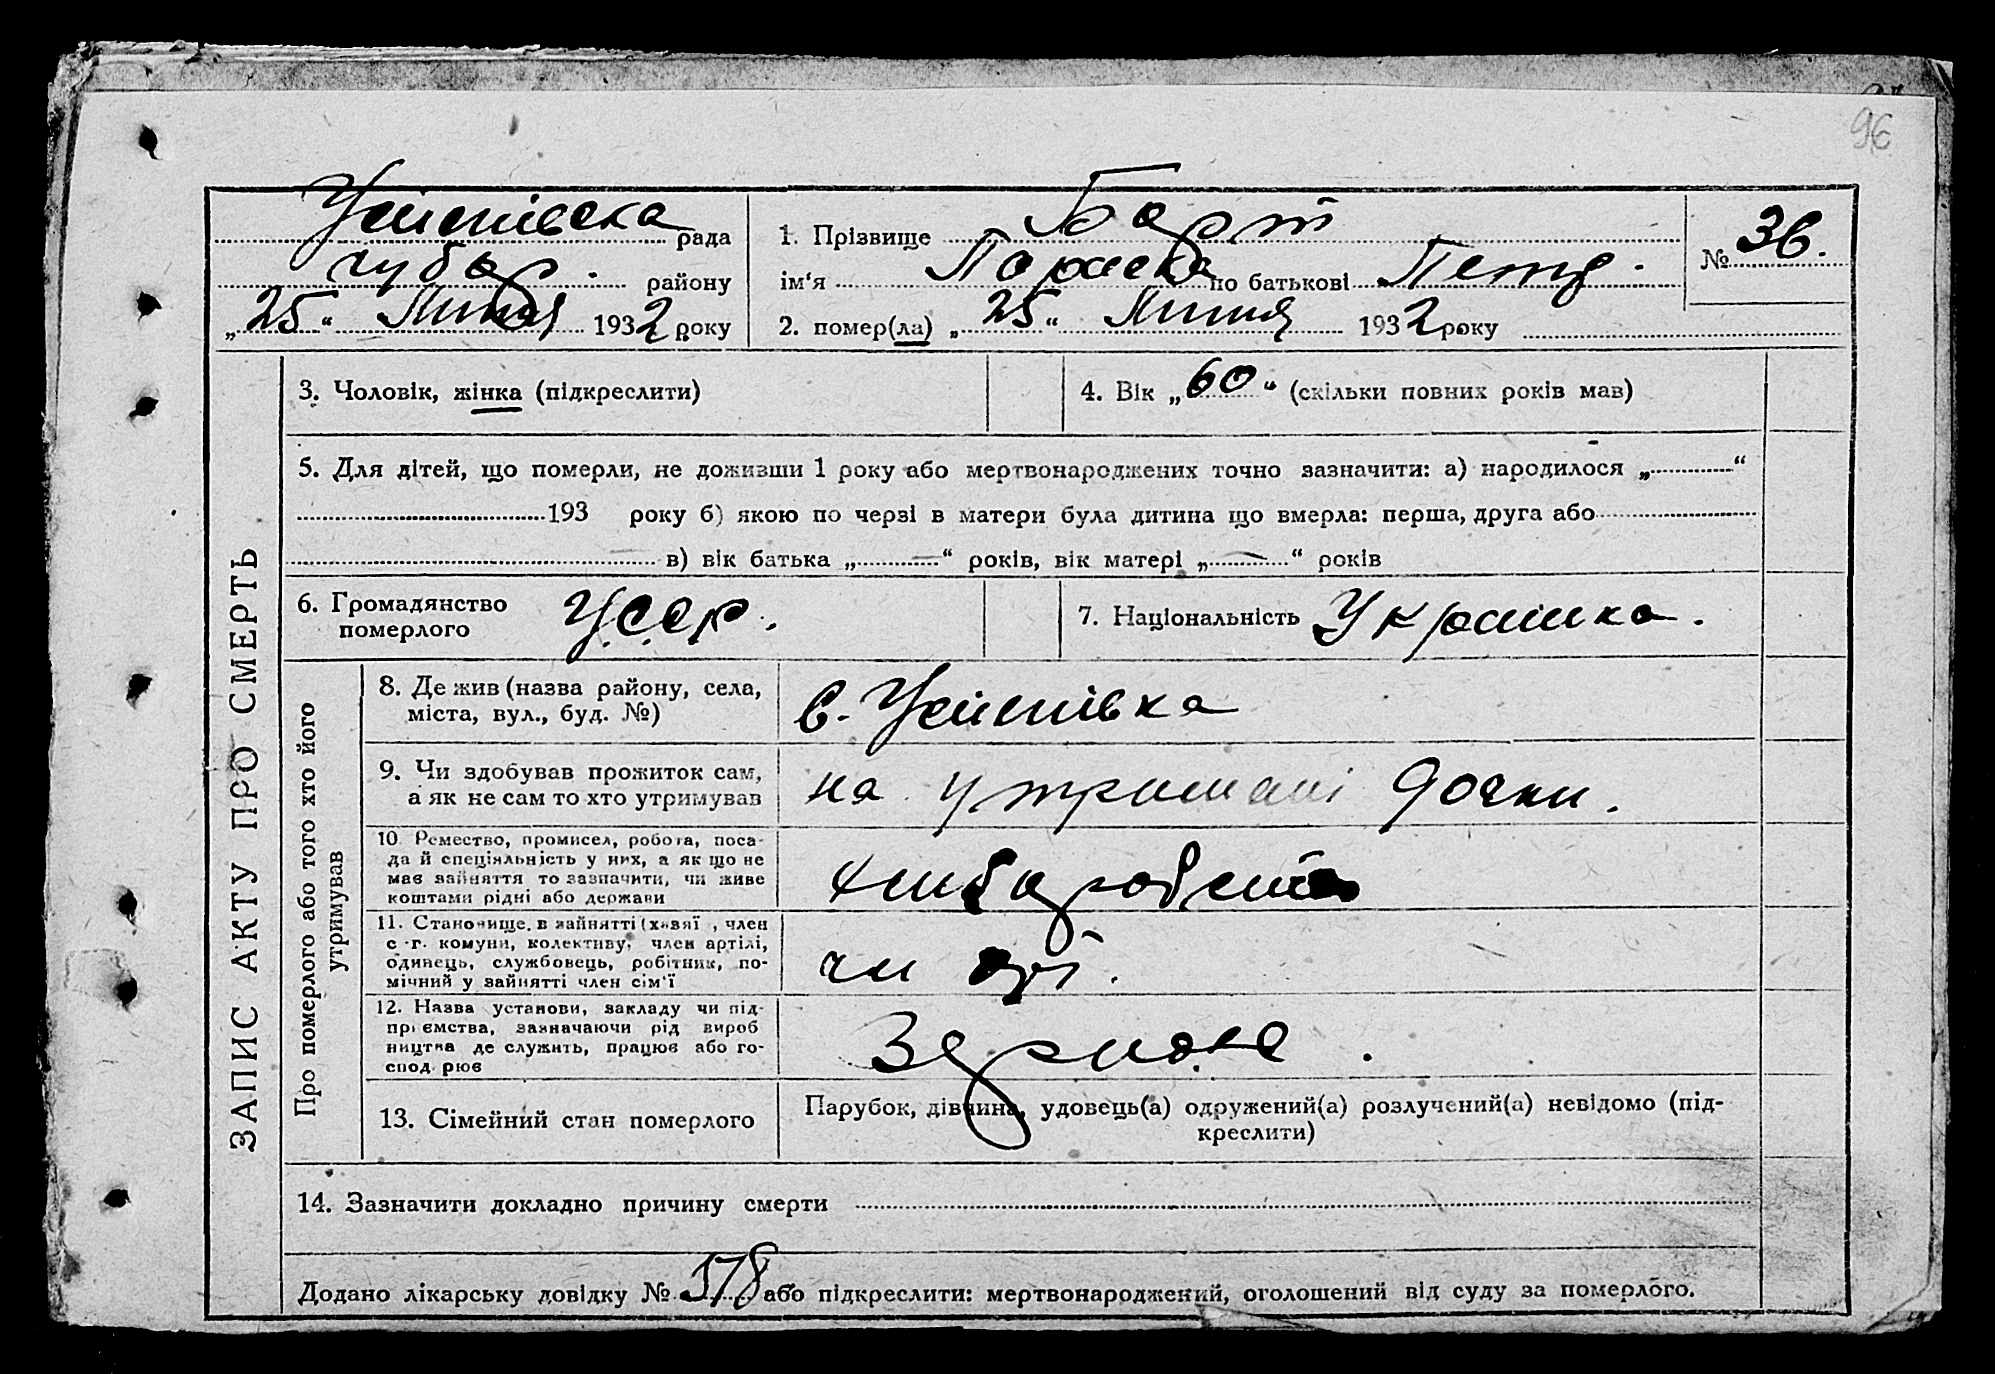 96
Успенівська рада
губар. району
„25“ Липня 1932 року
1. Прізвище Барт
ім‘я Параска по батькові Петр.
2. помер(ла) „25“ Липня 1932 року
№ 36.
ЗАПИС АКТУ ПРО СМЕРТЬ
3. Чоловік, жінка (підкреслити)
4. Вік „60“ (скільки повних років мав)
5. Для дітей, що померли, не доживши 1 року або мертвонароджених точно зазначити: а) народилося „ “
193 року б) якою по черзі в матери була дитина що вмерла: перша, друга або
в) вік батька „—“ років, вік матері „—“ років
6. Громадянство
померлого
УССР.
7. Національність Українка.
Про померлого або того хто його
утримував
8. Де жив (назва району, села,
міста, вул., буд. №)
с. Успенівка
9. Чи здобував прожиток сам,
а як не сам то хто утримував
на утримані дочки.
10 Ремество, промисел, робота, поса-
да й спеціяльність у них, а як що не
має зайняття то зазначити, чи живе
коштами рідні або держави
11. Становище в зайнятті (хазяї, член
с.-г. комуни, колективу, член артілі,
одинець, службовець, робітник, по-
мічний у зайнятті член сім‘ї
чл арт.
12. Назва установи, закладу чи під-
приємства, зазначаючи рід вироб
ництва де служить, працює або го-
сподарює
13. Сімейний стан померлого
Парубок, дівчина, удовець(а) одружений(а) розлучений(а) невідомо (під-
креслити)
14. Зазначити докладно причину смерти
Додано лікарську довідку № 578 або підкреслити: мертвонароджений, оголошений від суду за померлого.